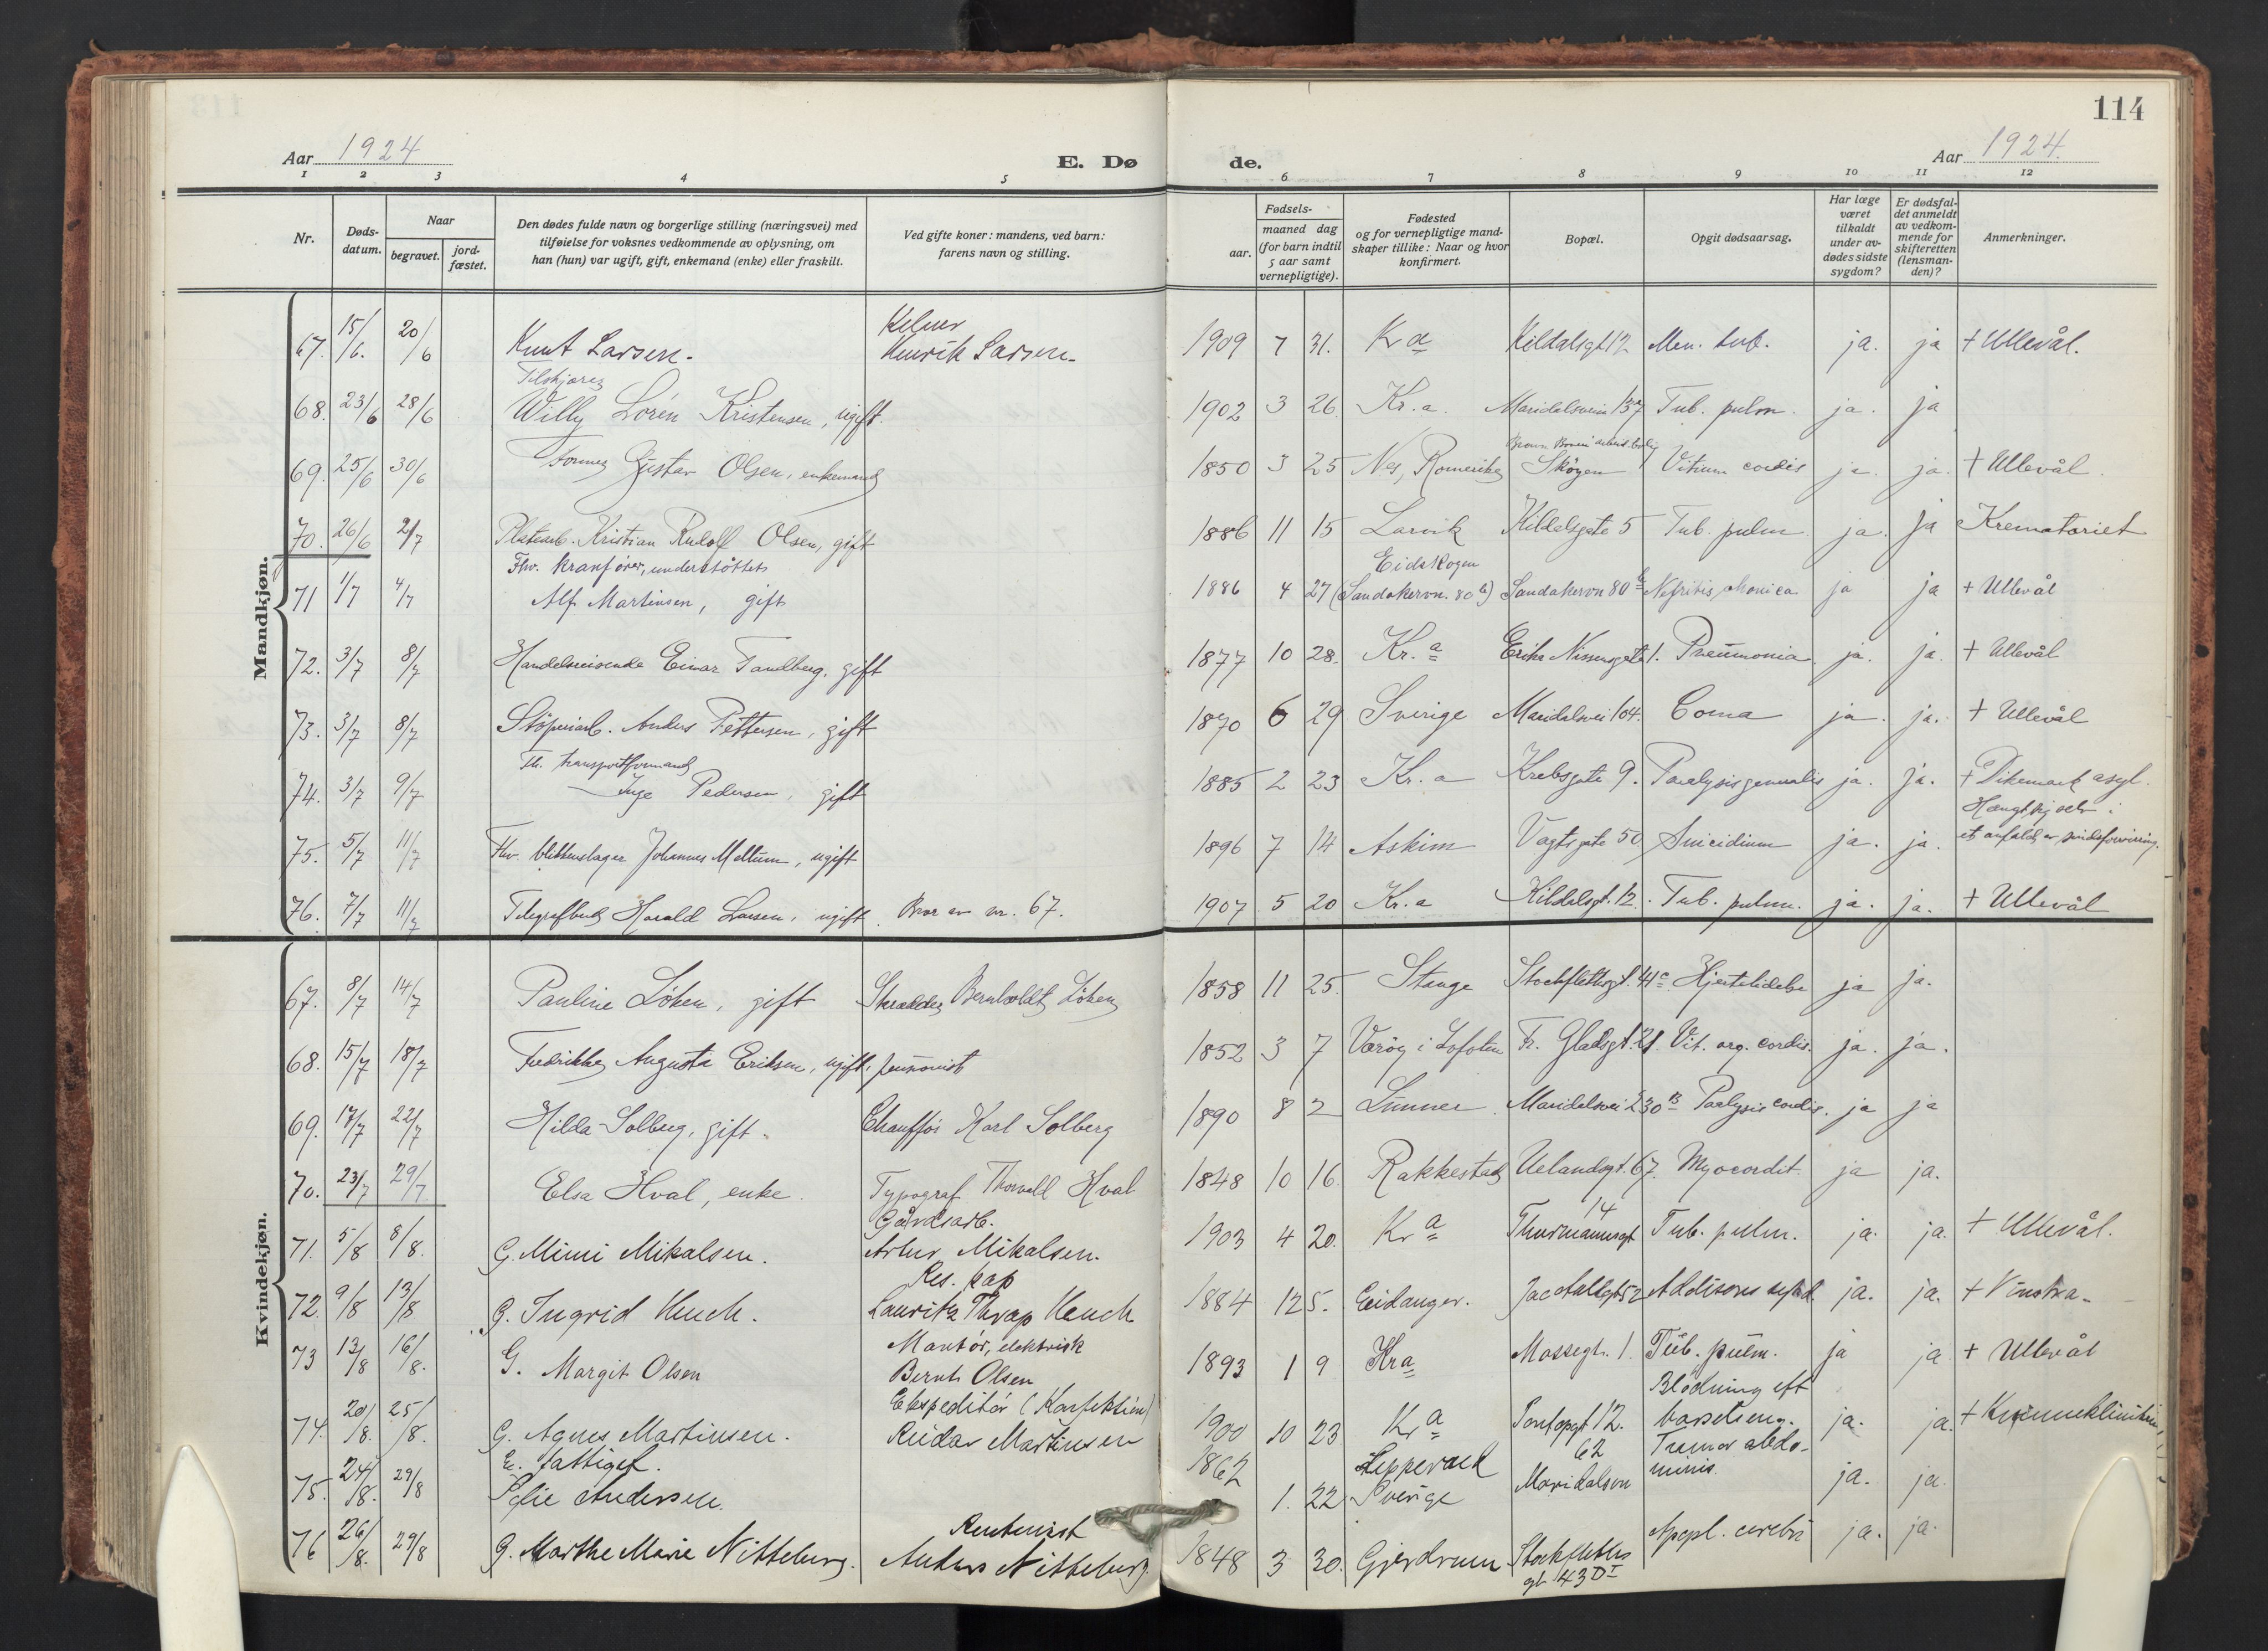 114
Aar 1924
E. Dø
de.
Aar 1924.
1 2 3 4 5 6 7 8 9 10 11 12
Nr.
Døds-
datum.
Naar
begravet.
jord-
fæstet.
Den dødes fulde navn og borgerlige stilling (næringsvei) med
tilføielse for voksnes vedkommende av oplysning, om
han (hun) var ugift, gift, enkemand (enke) eller fraskilt.
Ved gifte koner: mandens, ved barn:
farens navn og stilling.
Fødsels-
aar.
maaned dag
(for barn indtil
5 aar samt
vernepligtige).
Fødested
og for vernepligtige mand-
skaper tillike: Naar og hvor
konfirmert.
Bopæl.
Opgit dødsaarsag.
Har læge
været
tilkaldt
under av-
dødes sidste
sygdom?
Er dødsfal-
det anmeldt
av vedkom-
mende for
skifteretten
(lensman-
den)?
Anmerkninger.
Mandkjøn.
Kelner
67. 15/6. 20/6 Knut Larsen. Henrik Larsen. 1909 7 31. Kra Kildalsgt 12 Men. tub. ja. ja + Ullevål.
68. 23/6 28/6 Willy Lorén Kristensen, ugift. 1902 3 26. Kr.a. Maridalsvein 137 Tub. pulm. ja. ja
69. 25/6 30/6 Gustav Olsen, enkemand 1850 3 25 Nes, Romerike Skøyen Vitium cordis ja. ja. + Ullevål.
70. 26/6 2/7 Platearb. Kristian Rudolf Olsen, gift 1886 11 15 Larvik Kildalsgate 5 Tub. pulm. ja. ja Krematoriet
Fhv. kranfører, understøttet Eidskogen
71 1/7 4/7 Alf Martinsen, gift 1886 4 27 (Sandakervn. 80 b) Sandakervn 80 b Nefritis chronica ja ja + Ullevål
72. 3/7 8/7 Handelsreisende Einar Tandberg, gift 1877 10 28. Kr.a Erika Nissensgate 1. Pneumonia ja. ja. + Ullevål
73. 3/7 8/7 Støperiarb. Anders Pettersen, gift 1870 6 29 Sverige Maridalsvei 104. Coma ja. ja. + Ullevål
Fh. transportformand
74. 3/7 9/7 Inge Pedersen, gift 1885 2 23 Kr.a Krebsgate 9. Paralysis generalis ja. ja. + Dikemark asyl.
Hængt sig selv i
75. 5/7 11/7 Fhv. blikkenslager Johannes Meltum, ugift 1896 7 14 Askim Vogtsgate 50 Suicidium ja. ja. et anfald av sindsforvirring.
76. 7/7 11/7 Telegrafbud Harald Larsen, ugift. Bror av nr. 67. 1907 5 20 Kr.a Kildalsgt. 12. Tub. pulm. ja. ja. + Ullevål
Kvindekjøn.
67. 8/7 14/7 Pauline Løken, gift Skrædder Bernholdt Løken 1858 11 25. Stange Stockflethsgt. 41 c Hjertelidelse ja ja.
68. 15/7 18/7 Fredrikke Augusta Eriksen, ugift, pensionist 1852 3 7 Værøy i Lofoten Fr. Gladsgt. 21. Vit. org. cordis. ja. ja.
69. 17/7 22/7 Hilda Solberg, gift. Chauffør Karl Solberg 1890 8 2 Lunner Maridalsvei 230 B Paralysis cordis. ja ja
70. 23/7 29/7. Elsa Hval, enke. Typograf Thorvall Hval 1848 10 16. Rakkestad Uelandsgt. 67. Myocordit. ja ja.
Gårdsarb. 14
71. 5/8 8/8. G. Mimi Mikalsen. Artur Mikalsen. 1903 4 20. Kra Thurmannsgt Tub. pulm. ja. ja. + Ullevål.
Res. kap
72. 9/8 13/8 G. Ingrid Heuch. Lauritz Thrap Heuch 1884 12 5. Eidanger. Jac Aallsgt 52 Addisons ja. ja. + Vinstra.
Montør, elektrisk
73 13/8 16/8. G. Margit Olsen Bernt Olsen 1893 1 9 Kra Mossegt. 1. Tub. pulm. ja ja + Ullevål
Ekspeditør (Konfektion) Blødning eft
74. 20/8. 25/8. G. Agnes Martinsen. Reidar Martinsen 1900 10 23 Kra Pontoppgt 12. barselseng. ja. ja. + Kvinneklinikken
E. fattigst. 62 Tumor abdo-
75. 24/8. 29/8 Sofie Andersen. 1862 1. 22 Sverige Maridalsvn minis ja. ja.
Rentenist
76 26/8. 29/8 G. Marthe Marie Nitteberg. Anders Nitteberg. 1848 3 30. Gjerdrum Stockfleths Apopl. cerebri ja. ja.
gt 43 D I